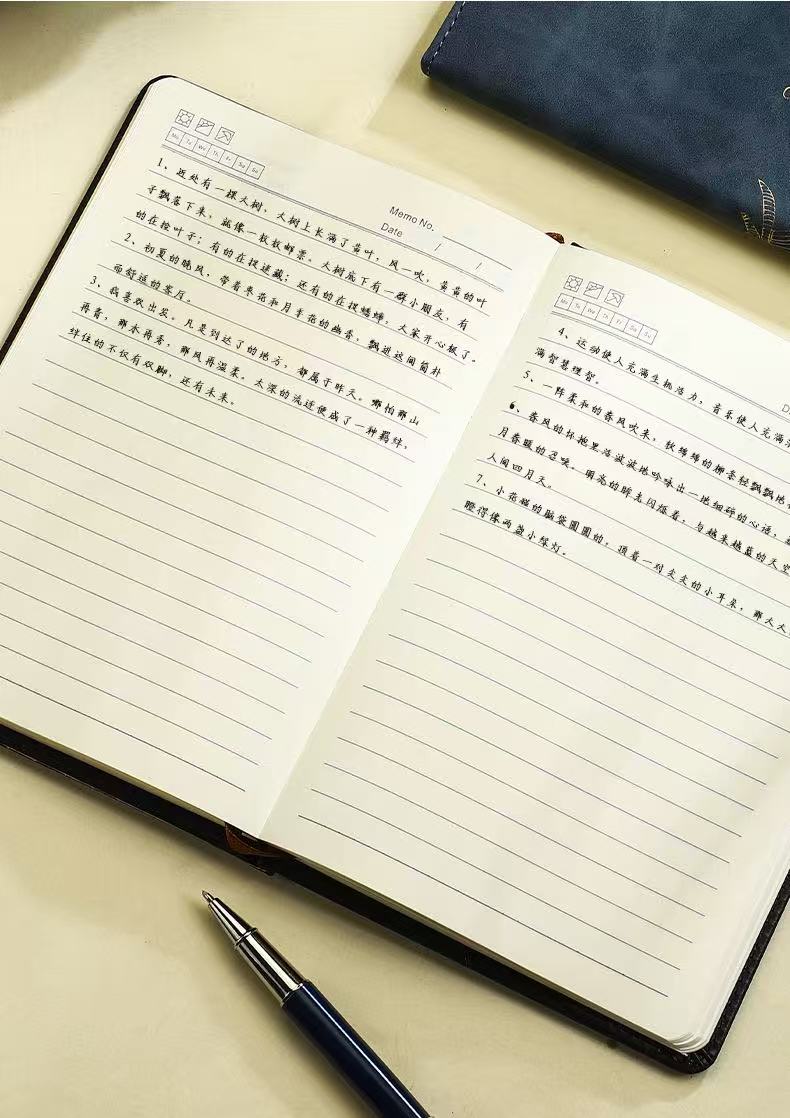 Mo Tu We Th Fr Sa Su
Memo No.
Date / /
1、近处有一棵大树，大树上长满了黄叶，风一吹，黄黄的叶
子飘落下来，就像一枚枚邮票。大树底下有一群小朋友，有
的在捡叶子；有的在捉迷藏；还有的在捉蟋蟀，大家开心极了。
2、初夏的晚风，带着枣花和月季花的幽香，飘进这间简朴
而舒适的客厅。
3、我喜欢出发。凡是到达了的地方，都属于昨天。哪怕那山
再青，那水再秀，那风再温柔。太深的流连便成了一种羁绊，
绊住的不仅有双脚，还有未来。
Mo Tu We Th Fr Sa Su
4、运动使人充满生机活力，音乐使人充满
满智慧理智。
5、一阵柔和的春风吹来，软绵绵的柳条轻飘飘地
6、春风的怀抱里活波波地吟咏出一地细碎的心语，
月春暖的召唤。明亮的眸光闪烁着，与越来越蓝的天空
人间四月天。
7、小花猫的脑袋圆圆的，顶着一对尖尖的小耳朵，那大大
瞪得像两盏小绿灯。